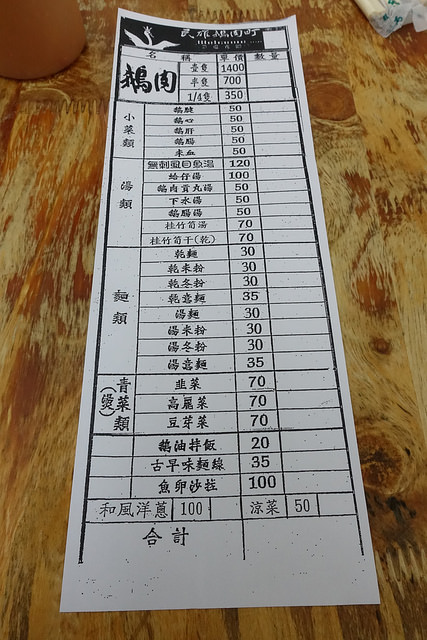 民雄鵝肉町
名 稱 單價 數量
鵝肉 壹隻 1400
半隻 700
1/4隻 350
小菜類
鵝腱 50
鵝心 50
鵝肝 50
鵝腸 50
米血 50
湯類
無刺虱目魚湯 120
蛤仔湯 100
鵝肉貢丸湯 50
下水湯 50
鵝腸湯 50
桂竹筍湯 70
桂竹筍干(乾) 70
麵類
乾麵 30
乾米粉 30
乾冬粉 30
乾意麵 35
湯麵 30
湯米粉 30
湯冬粉 30
湯意麵 35
青菜類(燙)
韭菜 70
高麗菜 70
豆芽菜 70
鵝油拌飯 20
古早味麵線 35
魚卵沙拉 100
和風洋蔥 100 涼菜 50
合計